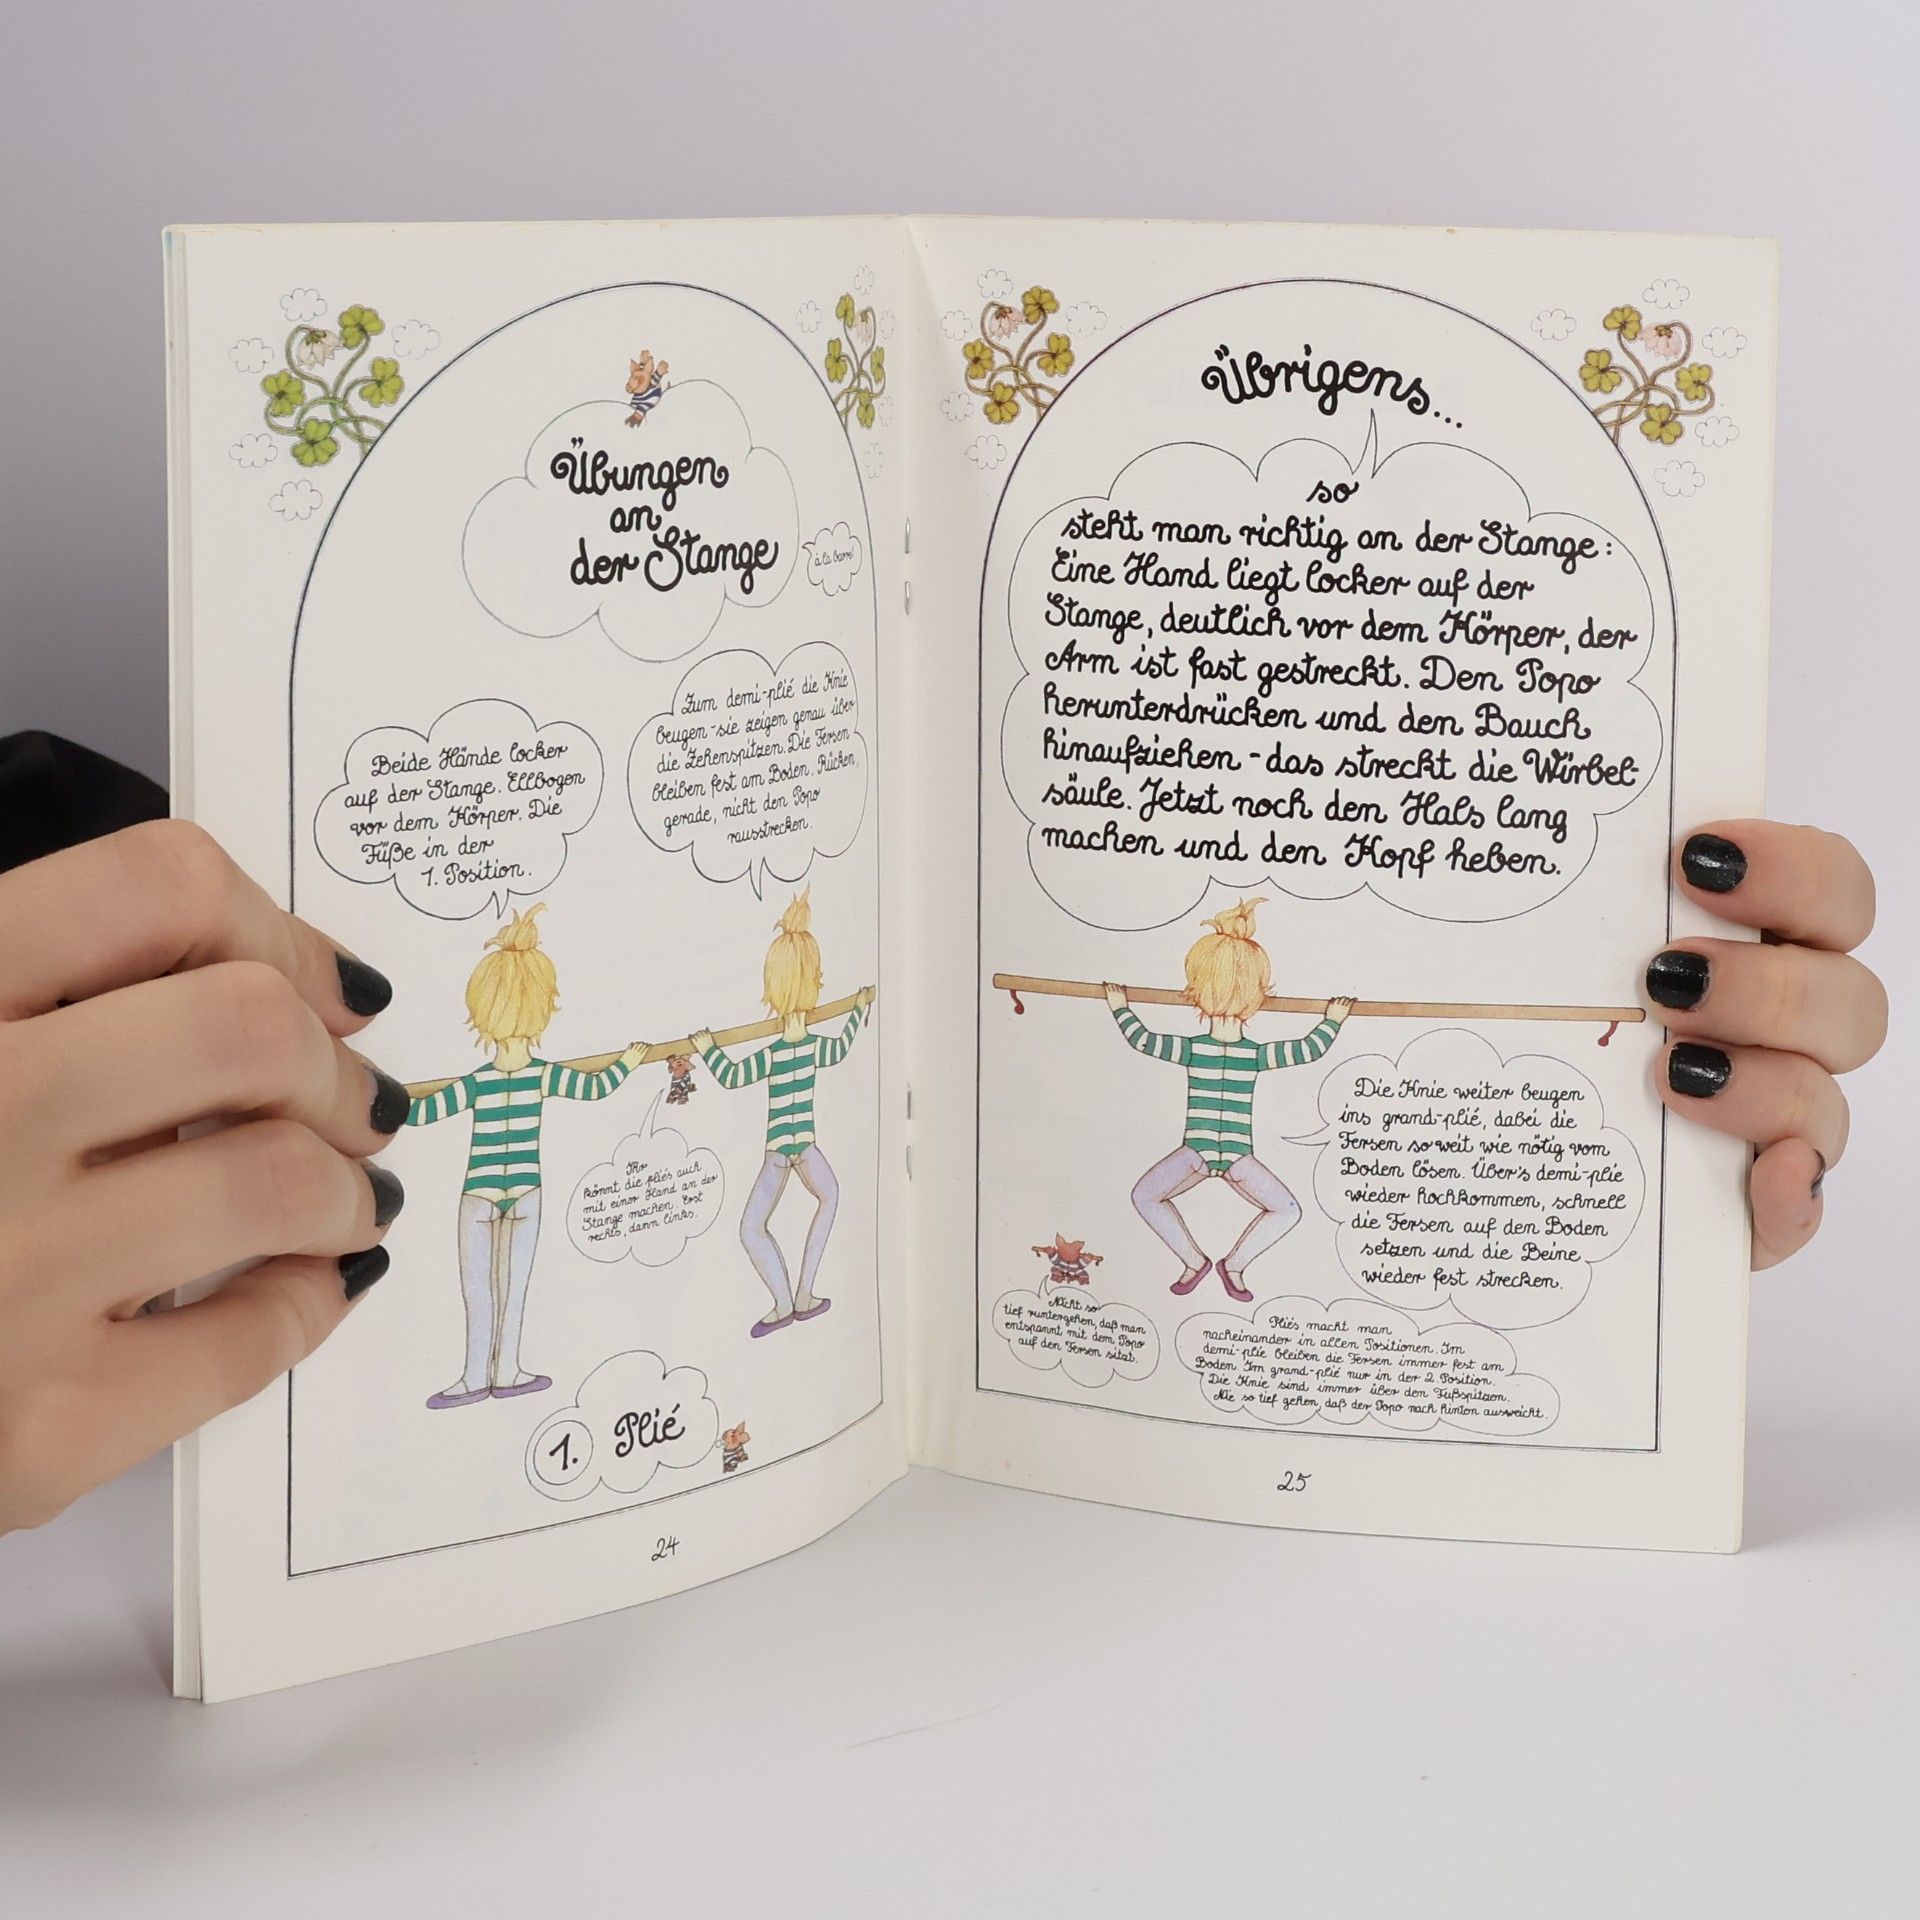 Übungen
an
der Stange
à la barre!
Beide Hände locker
auf der Stange. Ellbogen
vor dem Körper. Die
Füße in der
1. Position.
Zum demi-plié die Knie
beugen - sie zeigen genau über
die Zehenspitzen. Die Fersen
bleiben fest am Boden. Rücken
gerade, nicht den Popo
rausstrecken.
Ihr
könnt die pliés auch
mit einer Hand an der
Stange machen. Erst
rechts, dann links.
1. Plié
24
Übrigens...
so
steht man richtig an der Stange:
Eine Hand liegt locker auf der
Stange, deutlich vor dem Körper, der
Arm ist fast gestreckt. Den Popo
herunterdrücken und den Bauch
hinaufziehen - das streckt die Wirbel-
säule. Jetzt noch den Hals lang
machen und den Kopf heben.
Die Knie weiter beugen
ins grand-plié, dabei die
Fersen so weit wie nötig vom
Boden lösen. Über's demi-plié
wieder hochkommen, schnell
die Fersen auf den Boden
setzen und die Beine
wieder fest strecken.
Nicht so
tief runtergehen, daß man
entspannt mit dem Popo
auf den Fersen sitzt.
Pliés macht man
nacheinander in allen Positionen. Im
demi-plié bleiben die Fersen immer fest am
Boden. Im grand-plié nur in der 2. Position.
Die Knie sind immer über den Fußspitzen.
Nie so tief gehen, daß der Popo nach hinten ausweicht.
25